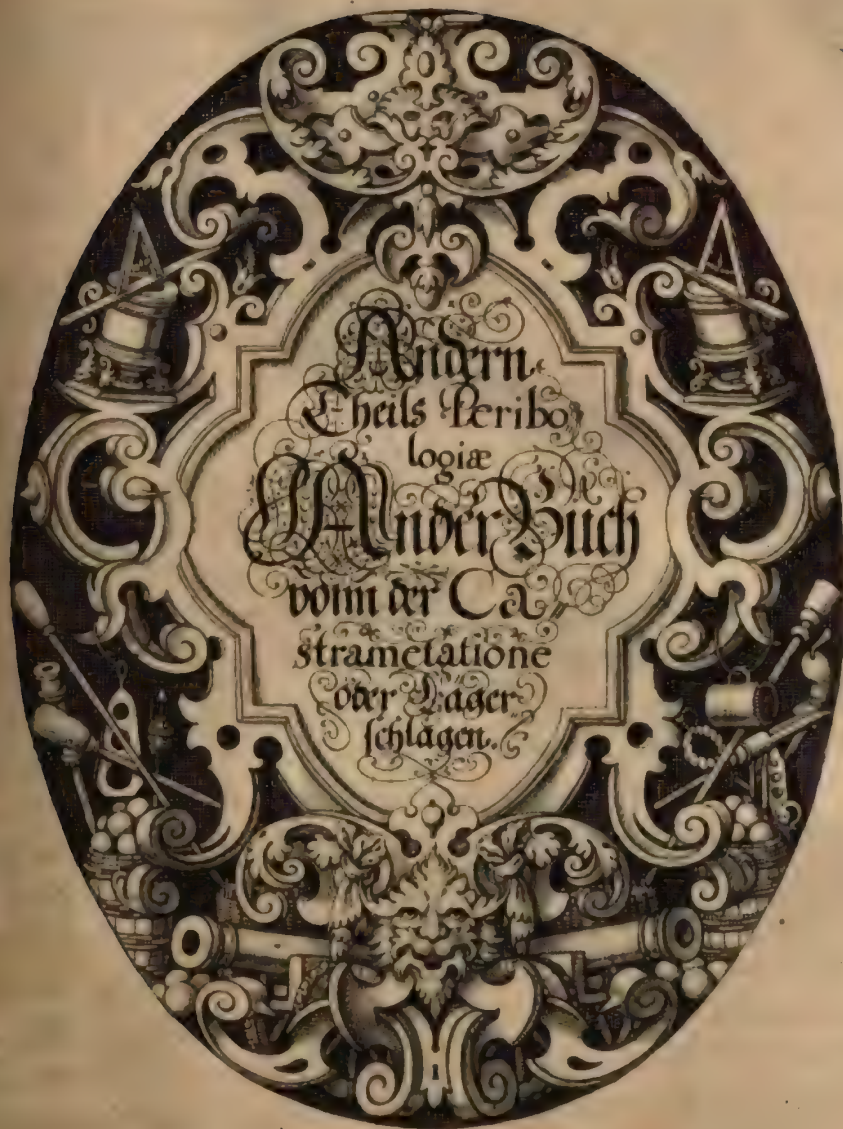 Andern
Theils Peribo
logiæ
Ander Buch
vonn der Ca
strametatione
oder Läger
schlagen.